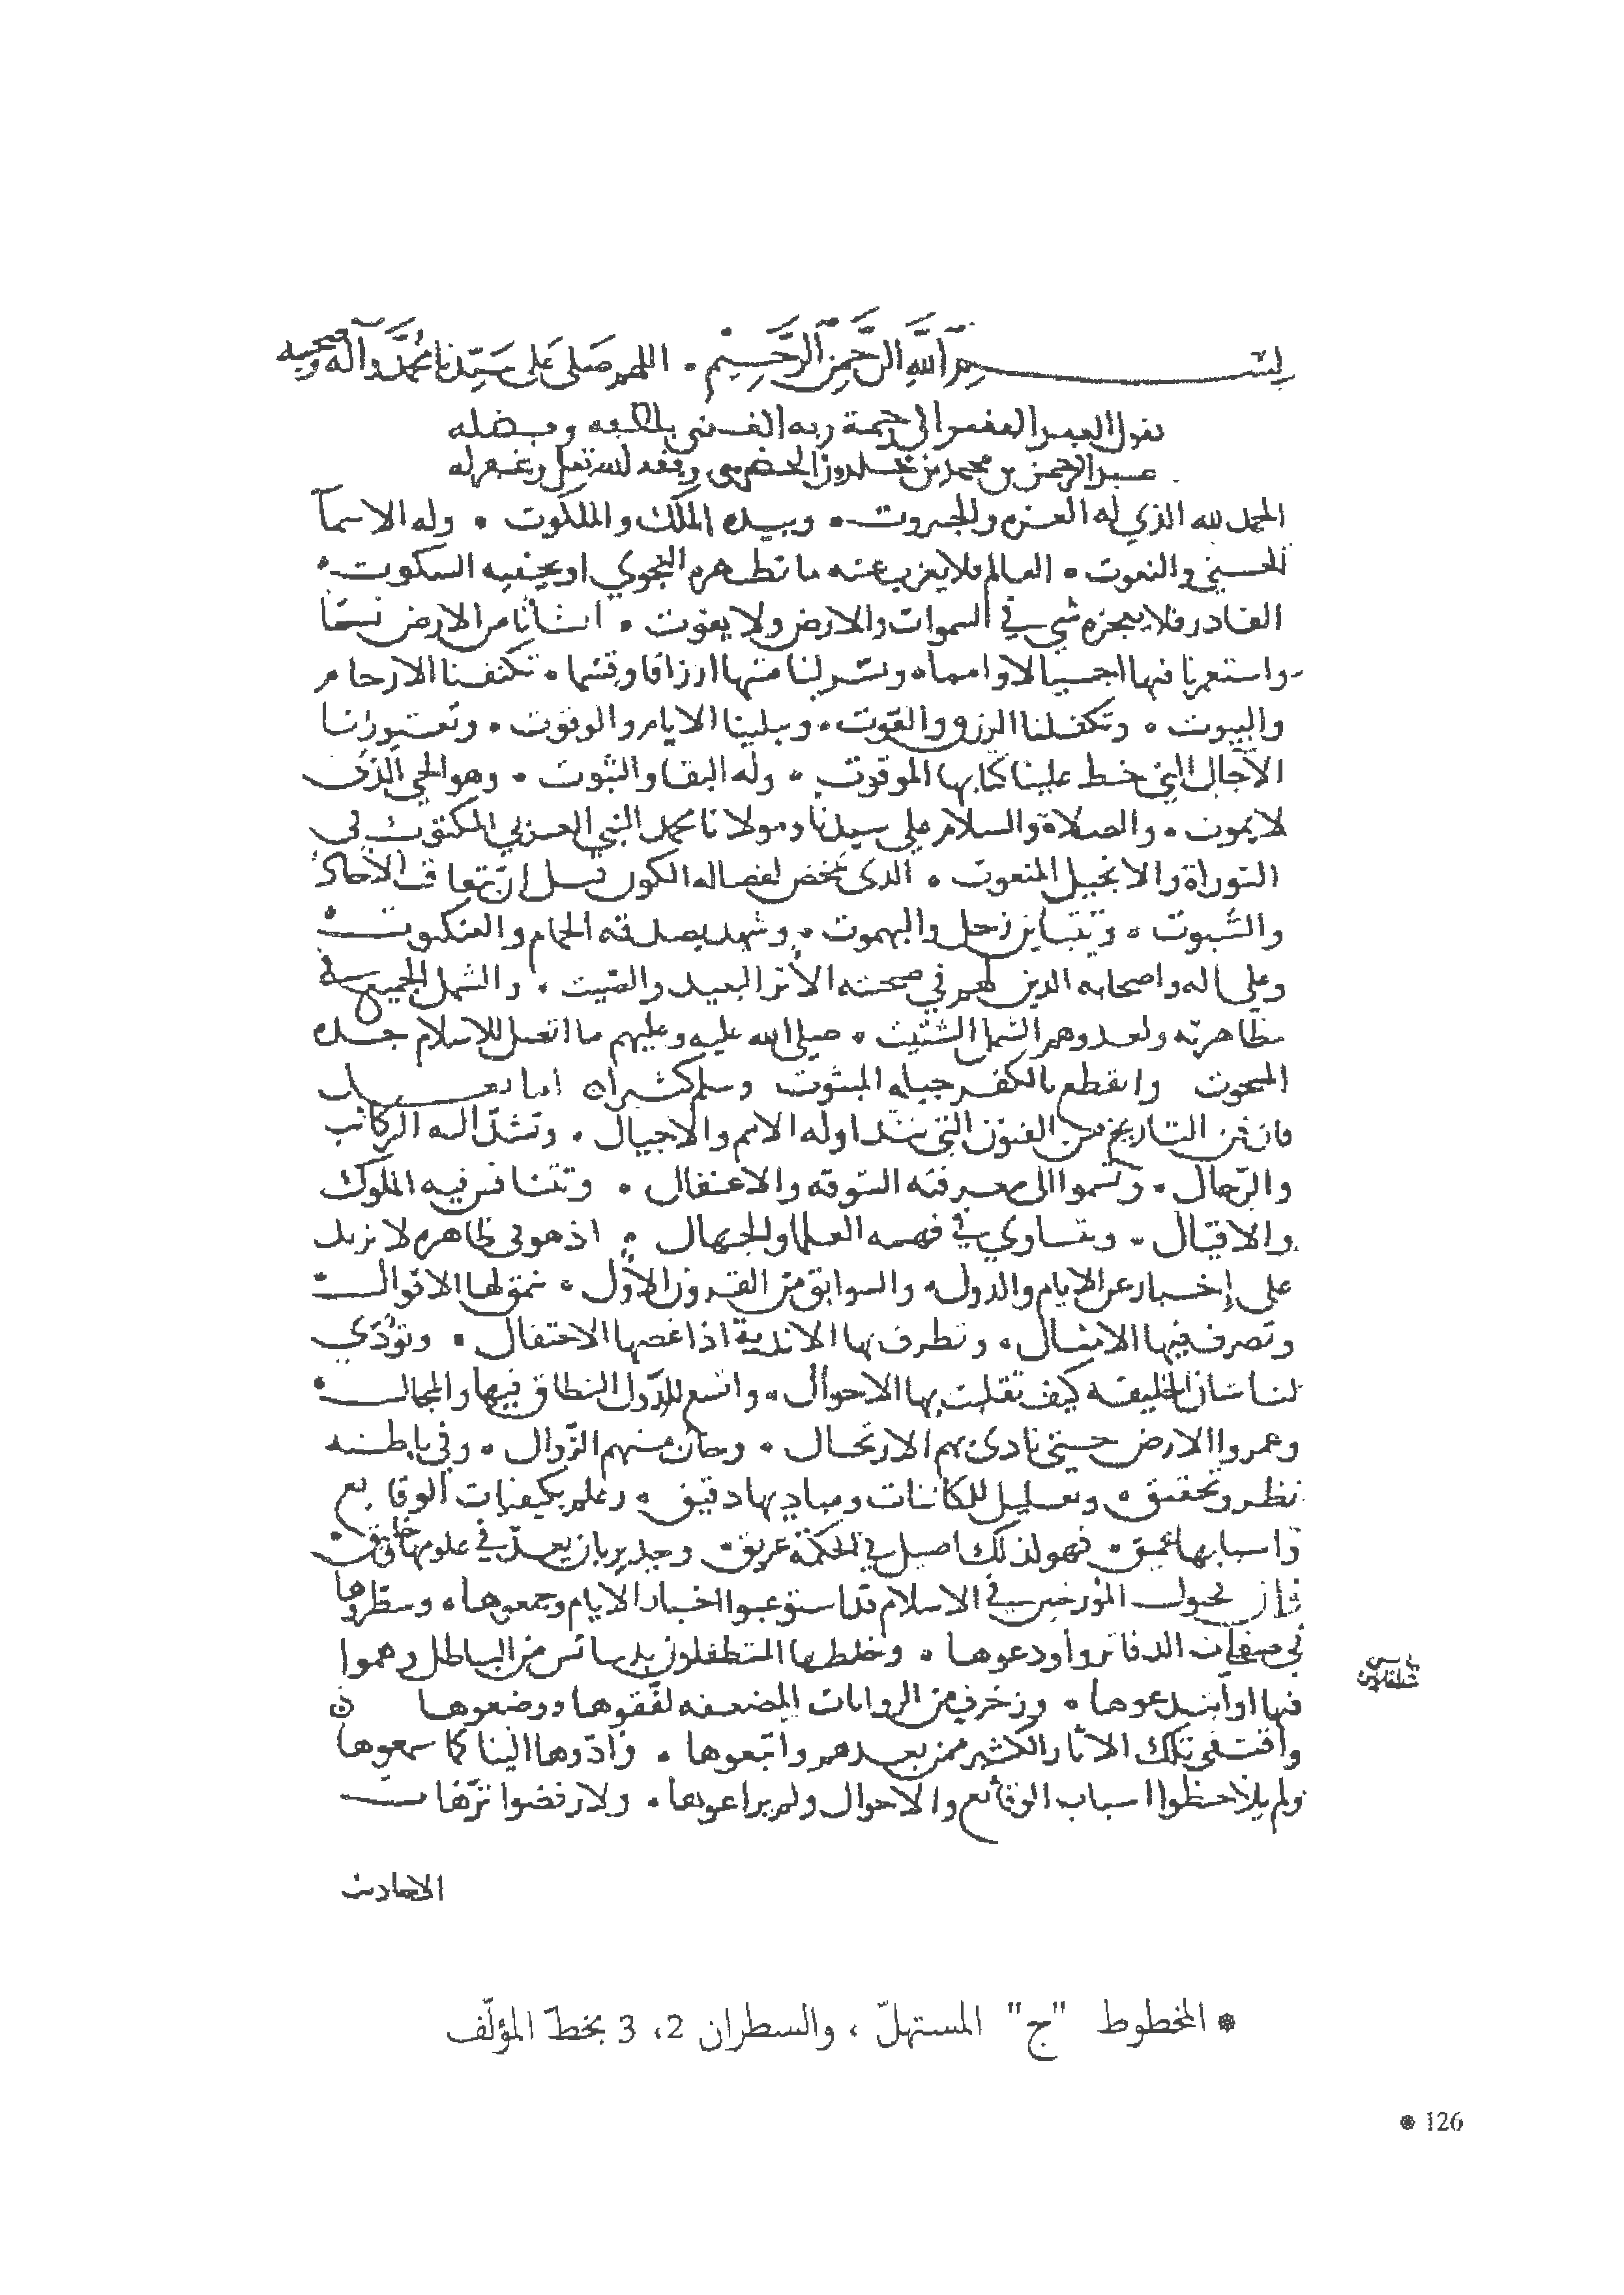 بسم الله الرحمن الرحيم . اللهم صلى على سيدنا محمد وآله وصحبه
يقول العبد الفقير الى رحمة ربه الغني بلطفه وبفضله
عبد الرحمن بن محمد بن خلدون الحضرمي وفقه الله تعلى وغفر له
الحمد لله الذي له العزة والجبروت . وبيده الملك والملكوت . وله الاسمآ
الحسنى والنعوت . العالم فلا يعزب عنه ما تظهره النجوي او يخفيه السكوت .
القادر فلا يعجزه شي في السموات والارض ولا يفوت . انشأنا من الارض نسمًا
واستعمرنا فيها اجيالا وامما . ويسّر لنا منها ارزاقا وقسما . تكنفنا الارحام
والبيوت . وتكفلنا الرزق والقوت . وتبلينا الايام والوقوت . وتعتورنا
الآجال التي خط علينا كتابها الموقوت . وله البقا والثبوت . وهو الحي الذي
لا يموت . والصلاة والسلام على سيدنا ومولانا محمد النبي العربي المكتوب في
التوراة والانجيل المنعوت . الذى تمخض لفصاله الكون قبل ان تتعاقب الآحاد
والسّبوت . وتتباين زحل والبهموت . وشهد بصدقه الحمام والعنكبوت .
وعلى اله واصحابه الذين لهم في صحبته الأثر البعيد والصّيت . والشمل الجميع في
مظاهرته ولعدوهم الشمل الشتيت . صلى الله عليه وعليهم ما اتصل للاسلام جده
المبخوت وانقطع بالكفر حبله المبتوت وسلم كثيرا . اما بعد
فان فن التاريخ من الفنون التي تتداوله الامم والاجيال . وتشدّ اليه الركائب
والرّحال . وتسموا الى معرفته السّوقة والاغفال . وتتنافس فيه الملوك
والاقيال . ويتساوي في فهمه العلما والجهال . اذ هو في ظاهره لا يزيد
على إخبار عن الايام والدول . والسوابق من القرون الأول . تنمق لها الاقوال
وتصرف فيها الامثال . وتطرف بها الاندية اذا غصها الاحتفال . وتؤدّي
لنا شان الخليقة كيف تقلبت بها الاحوال . واتسع للدّول النطاق فيها والمجال .
وعمروا الارض حتى نادى بهم الارتحال . وحان منهم الزّوال . وفي باطنه
نظر وتحقيق . وتعليل للكائنات ومباديها دقيق . وعلم بكيفيات الوقايع
واسبابها عميق . فهو لذلك اصيل في الحكمة عريق . وجدير بان يعدّ في علومها وخليق .
وان فحول المؤرخين في الاسلام قد استوعبوا اخبار الايام وجمعوها . وسطّروها
في صفحات الدفاتر وأودعوها . وخلطها المتطفلون بدسائس من الباطل وهموا
فيها او ابتدعوها . وزخرف من الروايات المضعفه لفّقوها ووضعوها
واقتفى تلك الاثار الكثير ممن بعدهم واتبعوها . وادّوها الينا كما سمعوها
ولم يلاحظوا اسباب الوقائع والاحوال ولم يراعوها . ولا رفضوا ترّهات
الاحاديث
* المخطوط "ج" المستهلّ ، والسطران 2، 3 بخطّ المؤلّف
* 126